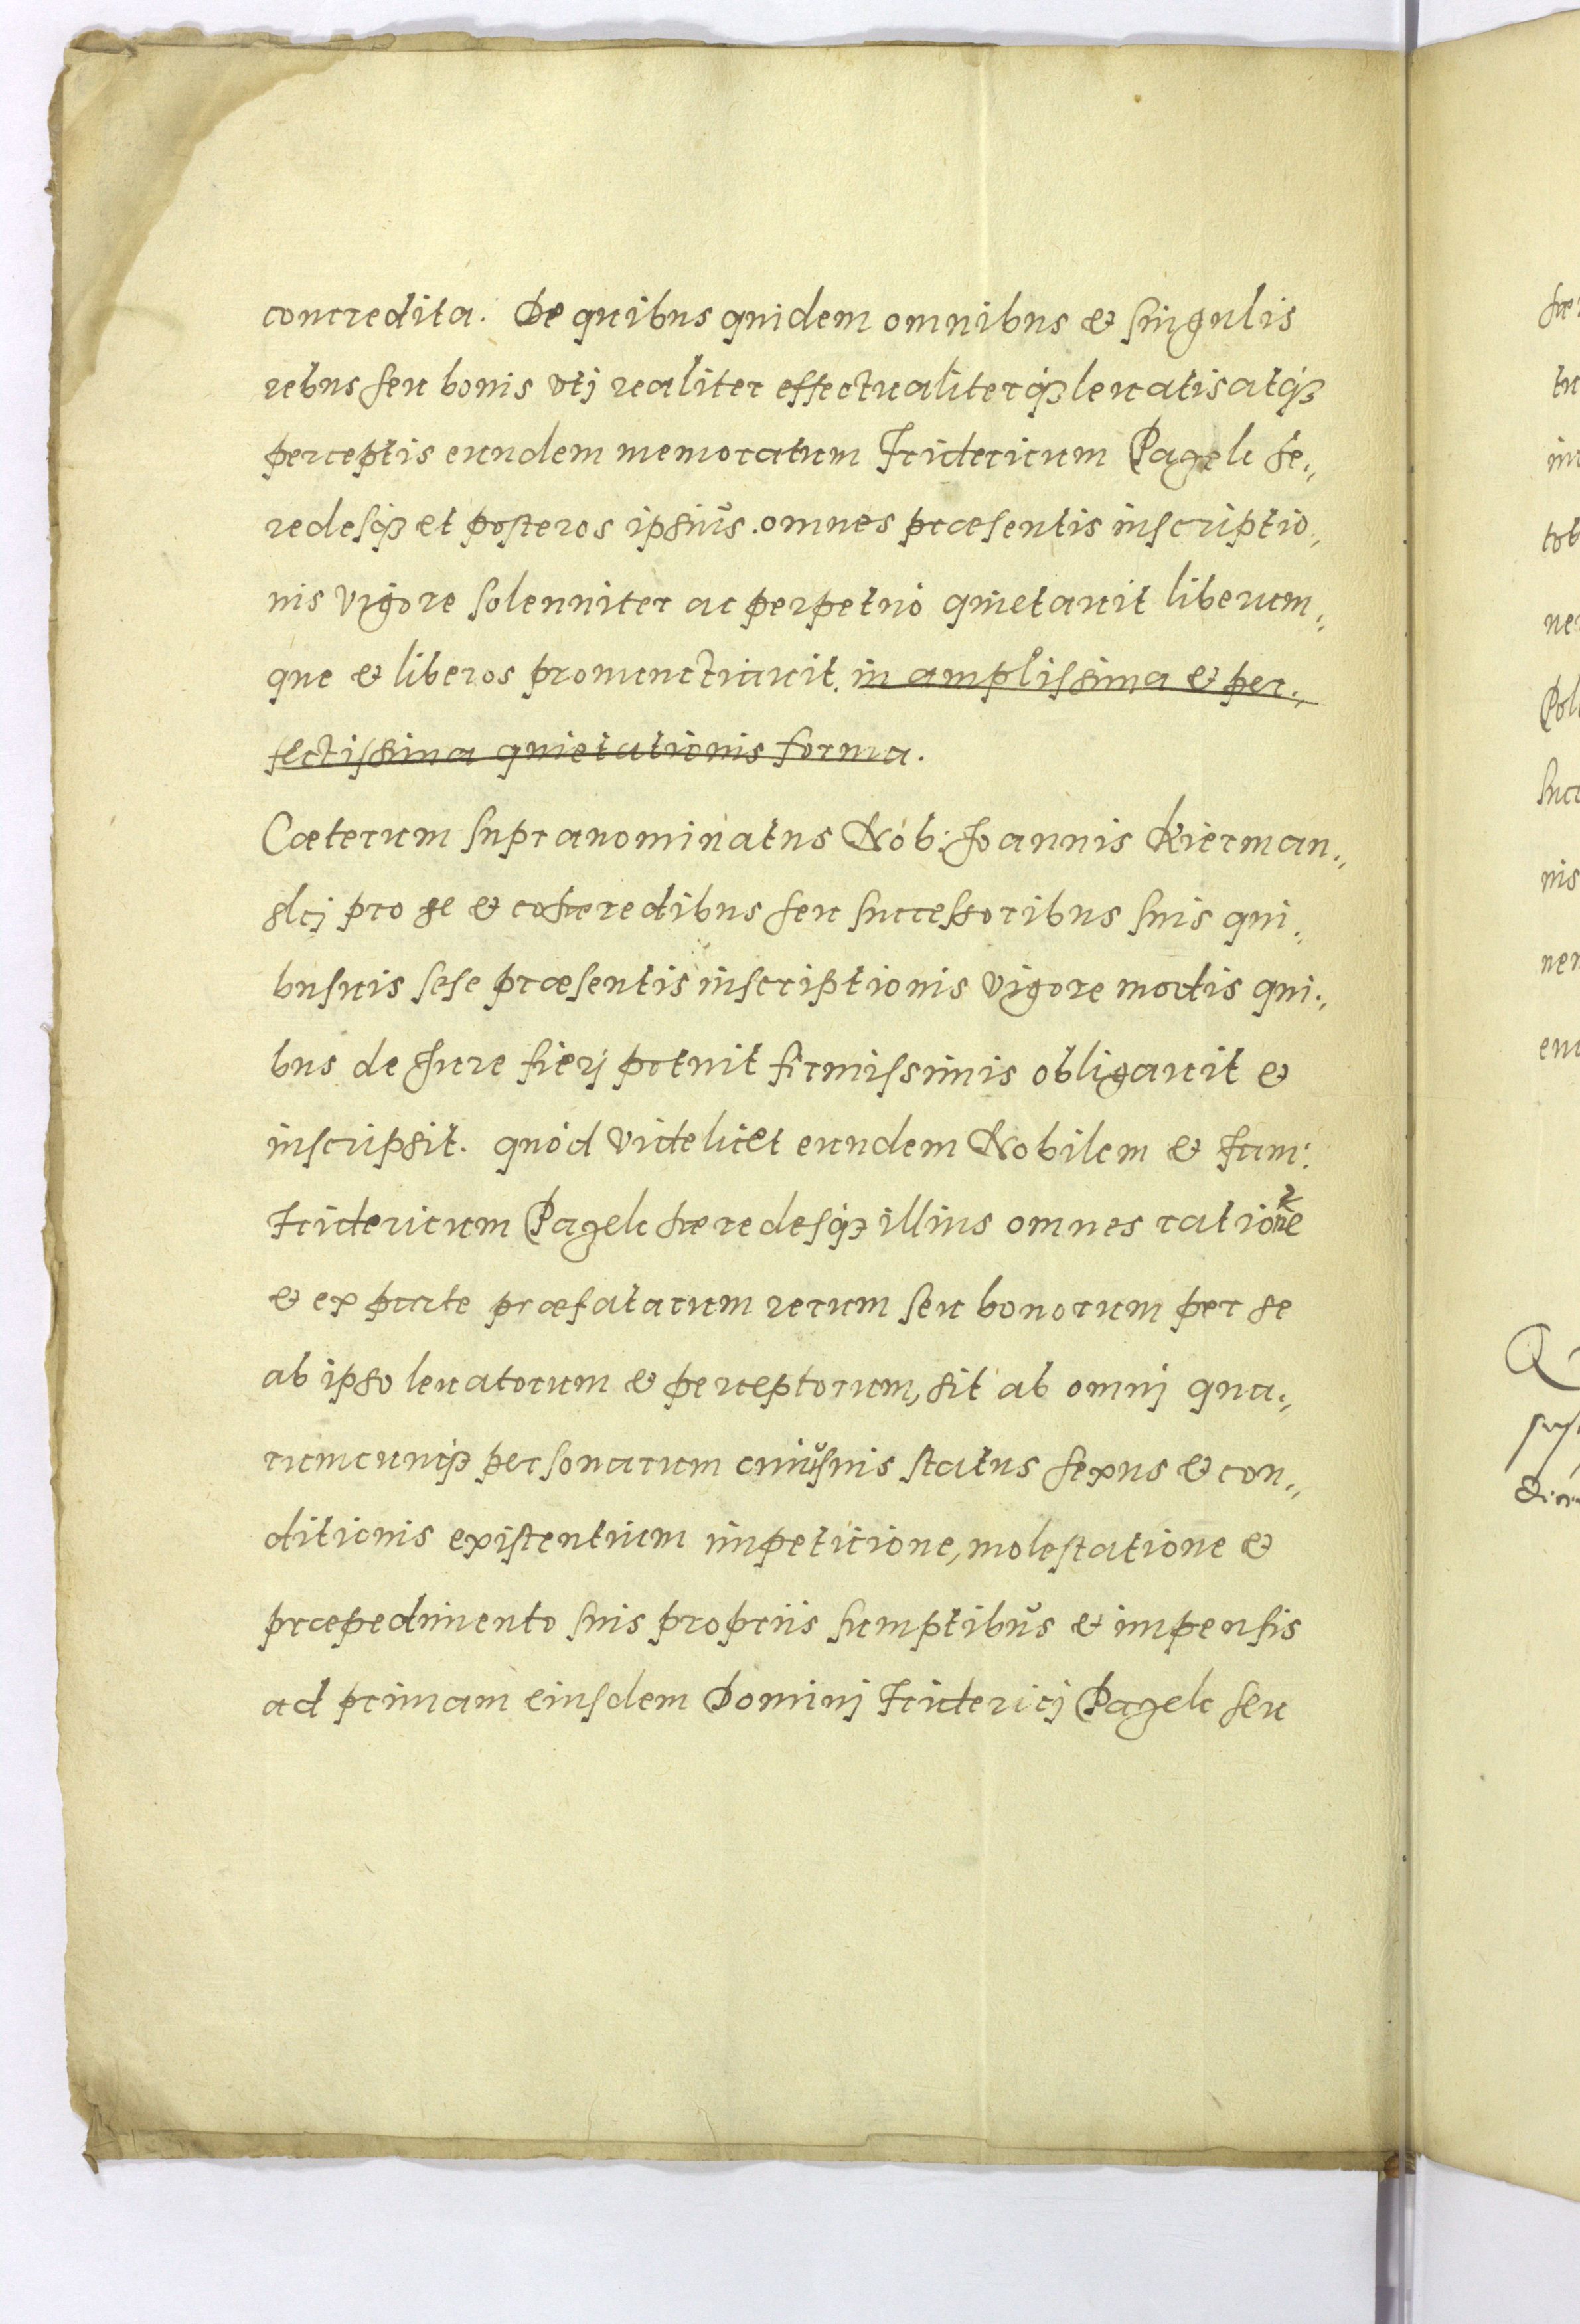 concredita. De quibus quidem omnibus & singulis
rebus seu bonis vtj realiter effectualiterq₃ leuatis atq₃
perceptis eundem memoratum Fridericum Pagelc he„
redesq₃ et posteros ipsius. omnes præsentis inscriptio„
nis vigore solenniter ac perpetuò quietauit liberum„
que & liberos pronunctiauit. in amplissima & per„
fectissima quietationis forma.
Cæterum supranominatus Nob: Joannis Kierman„
skj pro se & cohæredibus seu successoribus suis qui„
busuis sese præsentis inscriptionis vigore modis qui„
bus de Jure fierj potuit firmissimis obligauit &
inscripsit. quód videlicet eundem Nobilem & Fam:
Fridericum Pagelc hæredesq₃ illius omnes ratione
& ex parte præfatarum rerum seu bonorum per se
ab ipso leuatorum & perceptorum, sit ab omnj qua„
rumcunq₃ personarum cuiusuis status sexus & con„
ditionis existentium impeticione, molestatione &
præpedimento suis propriis sumptibus & impensis
ad primam eiusdem Dominj Fridericj Pagelc seu